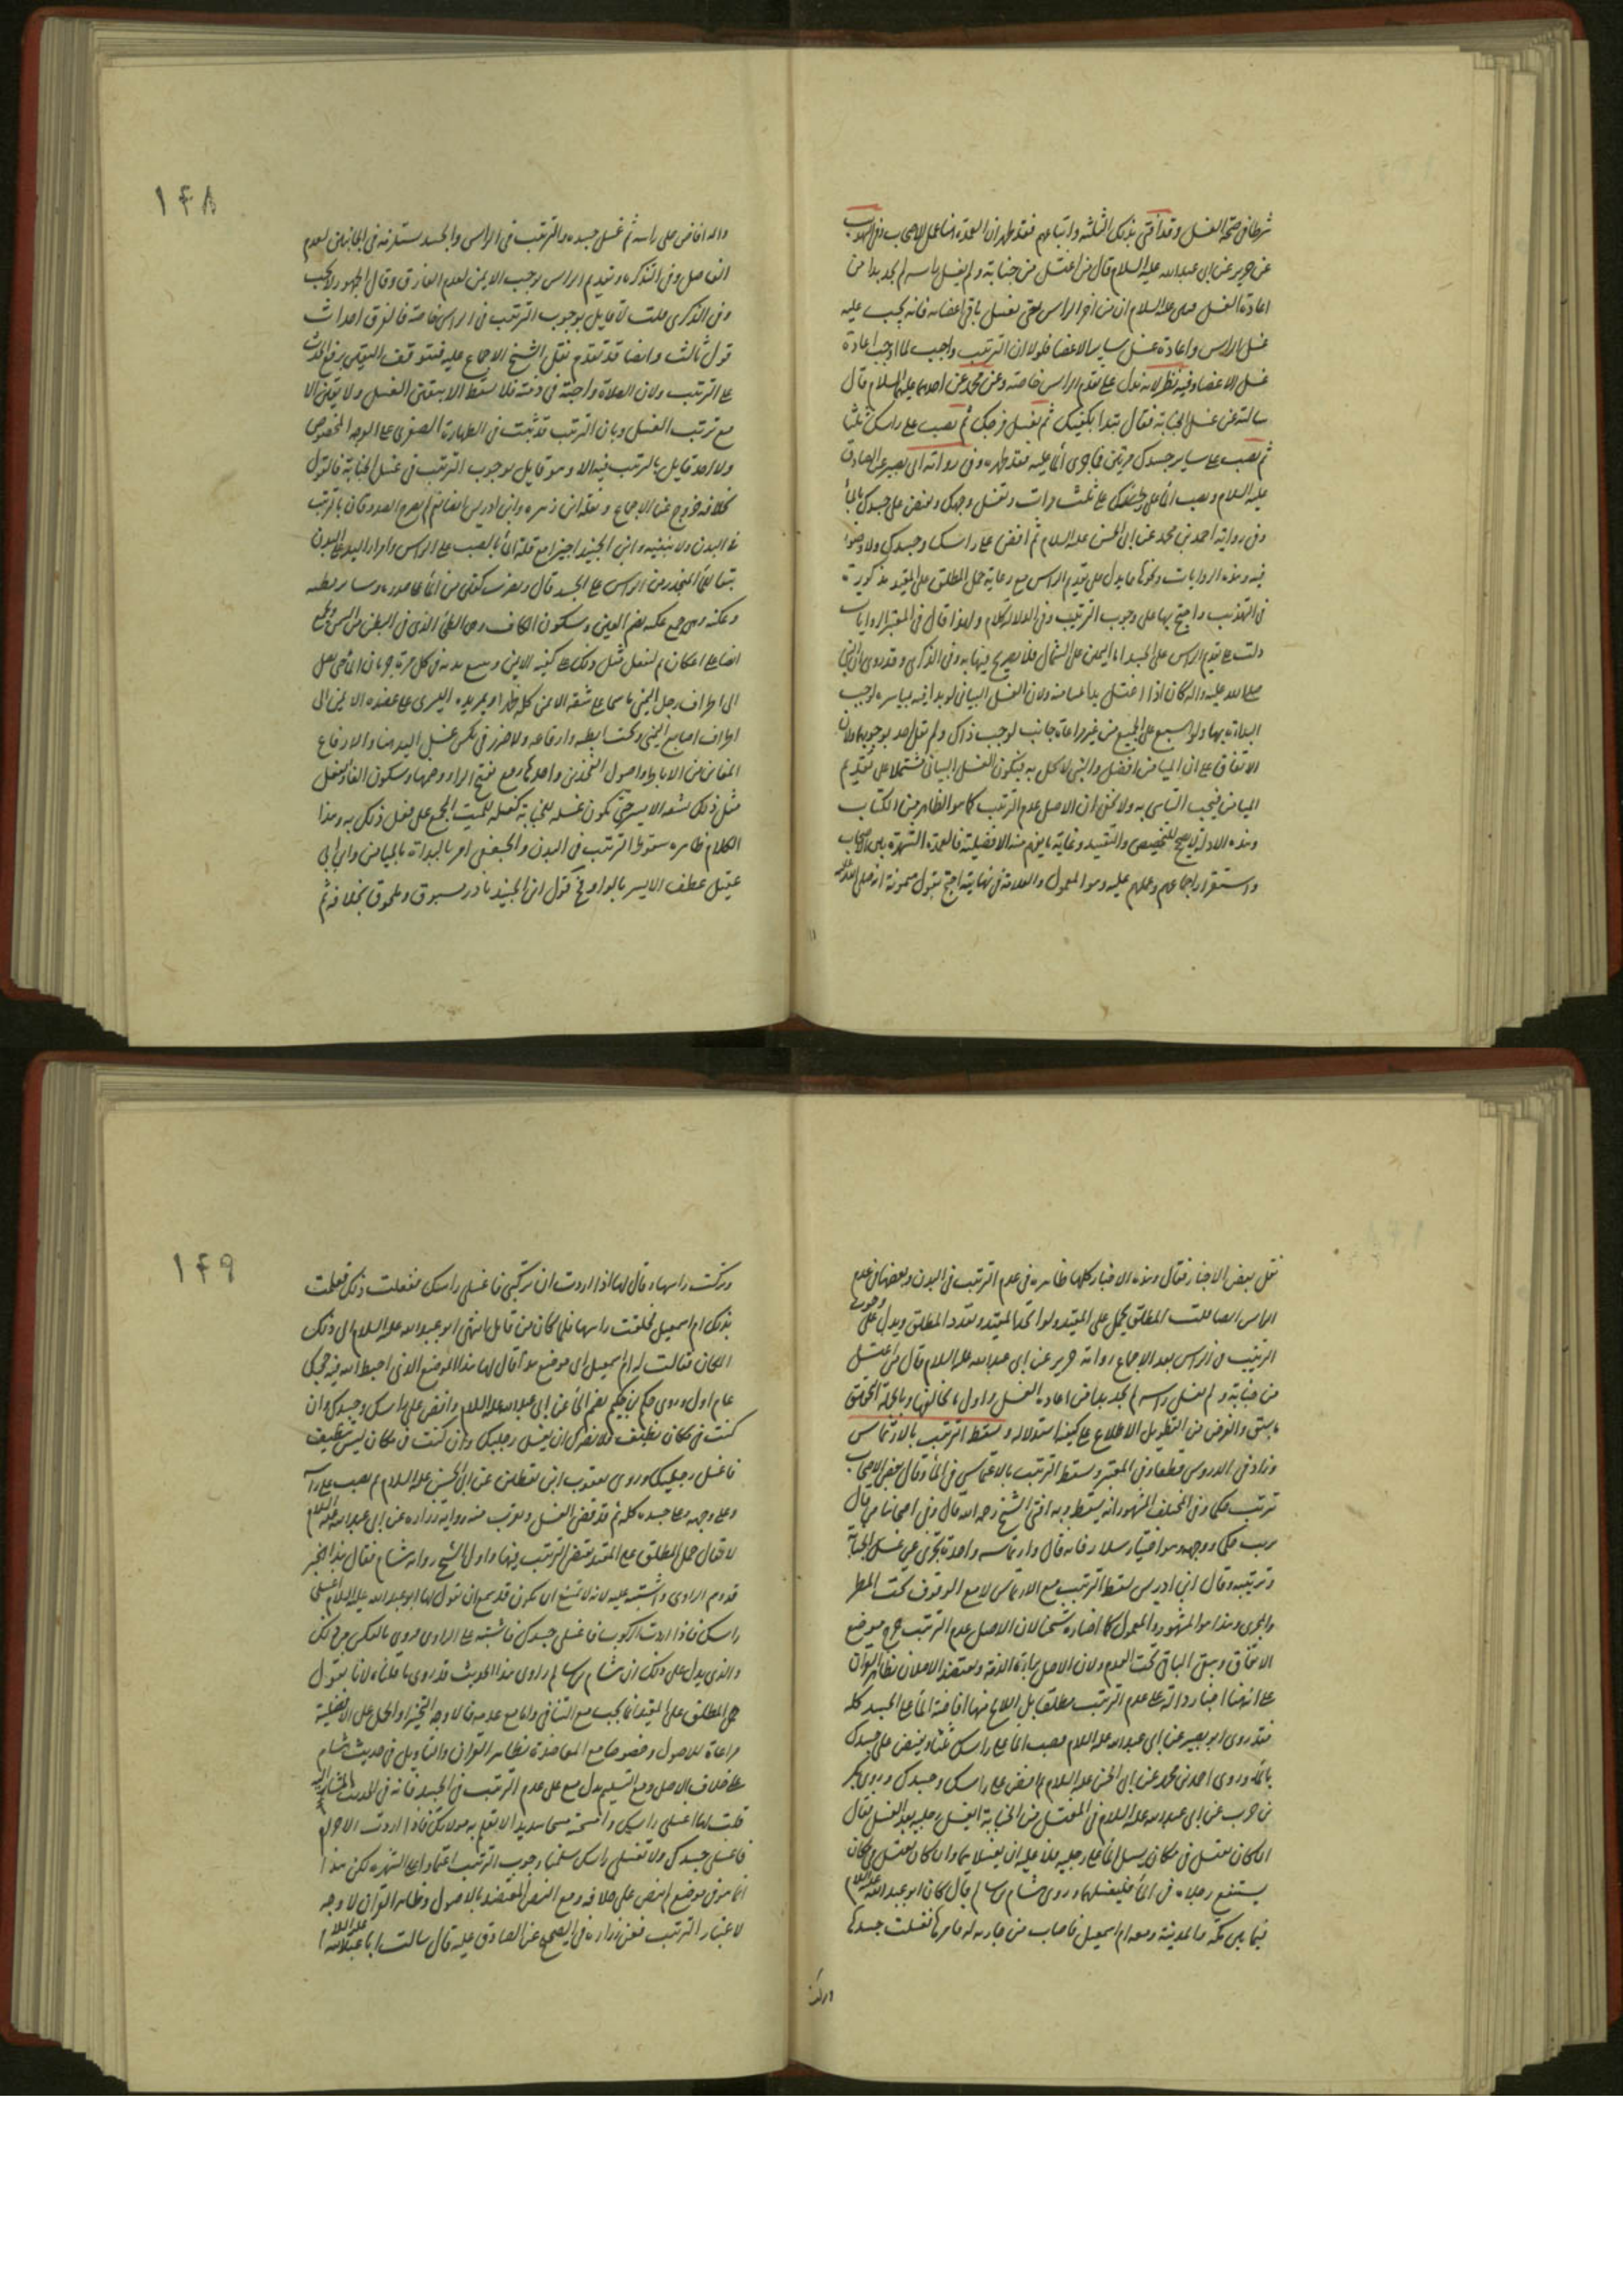 شرطا في صحة الغسل وقد أفتى بذلك الثلثة وأتباعهم فقد ظهر ان العمدة هنا عمل الاصحاب
عن حريز عن ابى عبدالله عليه السلام قال من اغتسل من جنابة ولم يغسل راسه لم يجد بدا من
اعادة الغسل ان من اخر الراس حتى يغسل باقى اعضائه فانه يجب عليه
غسل الراس واعادة غسل ساير الاعضا فلولا ان الترتيب واجب لما اوجب اعادة
غسل الاعضا وفيه نظر لانه يدل على تقدم الراس خاصة وعن محمد عن احدهما عليهما السلام قال
سالته عن غسل الجنابة فقال تبدا بكفيك ثم تغسل فرجك ثم تصب على راسك ثلثا
ثم تصب على ساير جسدك مرتين فما جرى الماء عليه فقد طهره وفى رواية ابى بصير عن الصادق
عليه السلام وتصب الماء على راسك ثلث مرات وتغسل وجهك وتفيض على جسدك الماء
وفى رواية احمد بن محمد عن ابى الحسن عليه السلام ثم افض على راسك وجسدك ولا وضوء
فيه وهذه الروايات ونحوها ما يدل على تقديم الراس مع رعاية حمل المطلق على المقيد مذكورة
فى التهذيب واحتج بها على وجوب الترتيب وفى الدلالة كلام ولهذا قال فى المعتبر الروايات
دلت على تقديم الراس على الجسد اما اليمين على الشمال فلا تصريح فيها به وفى الذكرى وقد روى ان النبي
صلى الله عليه واله كان اذا اغتسل بدا بميامنه ولان الغسل البيانى لو بدا فيه بمياسره لوجب
البداءة بها ولو اسبع على الجميع من غير مراعاة جانب لوجب ذاك ولم يقل احد بوجوبهما ولان
الاتفاق على ان الميامن افضل والنبى لا يخل به فيكون الغسل البيانى مشتملا على تقديم
الميامن فيجب التاسى به ولا يخفى ان الاصل عدم الترتيب كما هو الظاهر من الكتاب
وهذه الادلة لا تصلح للتخصيص والتقييد وغاية ما يلزم منه الافضلية فالعمدة الشهرة بين الاصحاب
واستقرار اجماعهم وعملهم عليه وهو المعمول والعلامة فى نهايته احتج بقول ميمونة انه صلى الله عليه
١٤٨
واله افاض على راسه ثم غسل جسده والترتيب فى الراس والجسد يستلزمه فى الجانبين لعدم
الفاصل وفى التذكرة وتقديم الراس يوجب الايمن لعدم الفارق وقال الجمهور لا يجب
وفى الذكرى قلت لا قايل بوجوب الترتيب فى الراس خاصة فالفرق احداث
قول ثالث وايضا قد تقدم نقل الشيخ الاجماع عليه فيتوقف اليقين برفع الحدث
على الترتيب ولان الصلاة واجبة فى ذمته فلا يسقط الا بيقين الغسل ولا يقين الا
مع ترتيب الغسل وبان الترتيب قد ثبت فى الطهارة الصغرى على الوجه المخصوص
ولا احد قايل بالترتيب فيه الا وهو قايل بوجوب الترتيب فى غسل الجنابة فالقول
بخلافه خروج عن الاجماع ونقله ابن زهره وابن ادريس ايضا
فى البدن ولا بنفيه وابن الجنيد اجتزا مع قلة الماء بالصب على الراس وامرار اليد على البدن
تبعا للماء المنحدر من الراس على الجسد قال ويضرب كفين من الماء على صدره وساير بطنه
وعكنه وهى جمع عكنة بضم العين وسكون الكاف وهى الطى الذى فى البطن من السمن
ثم يفعل مثل ذلك على كتفه الايمن ويتبع يديه فى كل مرة جريان الماء حتى يصل
الى اطراف رجل اليمنى ماسحا على شقه الايمن كله ظهرا ويمر يده اليسرى على عضده الايمن الى
اطراف اصابع اليمنى وتحت ابطيه وارفاغه ولا ضرر فى نكس غسل اليد هنا والارفاغ
المغابن من الاباط واصول الفخذين واحدها رفغ بفتح الراء وضمها وسكون الفاء ويفعل
مثل ذلك بشقه الايسر حتى يكون غسله للجنابة كغسله للميت المجمع على فعل ذلك به وهذا
الكلام ظاهره سقوط الترتيب فى البدن والجعفى امر بالبداة بالميامن وابن ابى
عقيل عطف الايسر بالواو وفى قول ابن الجنيد نادر مسبوق وملحوق بخلافه ثم
نقل بعض الاخبار فقال وهذه الاخبار كلها ظاهره فى عدم الترتيب فى البدن وبعضها فى عدم
الراس ايضا قلت المطلق يحمل على المقيد ولو اتحد المقيد وتعدد المطلق ويدل على وجوب
الترتيب فى الراس بعد الاجماع رواية حريز عن ابى عبدالله عليه السلام قال من اغتسل
من جنابة ولم يغسل راسه لم يجد بدا من اعادة الغسل واول ما يخالفها وبالجملة التحقيق
ما سبق والغرض من التطويل الاطلاع على كيفية استدلاله ويسقط الترتيب بالارتماس
وزاد فى الدروس قطعا وفى المعتبر ويسقط الترتيب بالارتماس فى الماء وقال بعض الاصحاب
ترتب حكما وفى المختلف المشهور انه يسقط وبه افتى الشيخ رحمه الله قال وفى اصحابنا من قال
يرتب حكما ووجهه هو اختيار سلار فانه قال وارتماسه واحدة تجزى عن غسل الجنابة
وترتيبه وقال ابن ادريس يسقط الترتيب مع الارتماس لا مع الوقوف تحت المطر
والمجرى وهذا هو المشهور والمعمول كما اختاره شيخنا لان الاصل عدم الترتيب خرج موضع
الاتفاق وبقى الباقى تحت العدم ولان الاصل براءة الذمة ويعتضد الاصلان بظاهر القران
على ان هنا اخبارا دالة على عدم الترتيب مطلقا بل منها افاضة الماء على الجسد كله
فقد روى ابو بصير عن ابى عبدالله عليه السلام تصب الماء على راسك ثلثا وتفيض على جسدك
بالماء وروى احمد بن محمد عن ابى الحسن عليه السلام ثم افض على راسك وجسدك وروى بكر
بن حرب عن ابى عبدالله عليه السلام فى المغتسل من الجنابة ايغسل رجليه بعد الغسل فقال
ان كان يغتسل فى مكان يسيل الماء على رجليه فلا عليه ان يغسلهما وان كان يغتسل فى مكان
يستنقع رجلاه فى الماء فليغسلهما وروى هشام بن سالم قال كان ابو عبدالله عليه السلام
فيما بين مكة والمدينة ومعه ام اسمعيل فاصاب من جارية له فامرها فغسلت جسدها
وتركت
١٤٩
وتركت راسها وقال لها اذا اردت ان تركبى فاغسلى راسك ففعلت ذلك فعلمت
بذلك ام اسمعيل فحلقت راسها فلما كان من قابل انتهى ابو عبدالله عليه السلام الى ذلك
المكان فقالت له ام اسمعيل اى موضع هذا قال لها هذا الموضع الذى احبط الله فيه حجك
عام اول وروى حكم بن حكيم بضم الحاء عن ابى عبدالله عليه السلام وافض على راسك وجسدك وان
كنت فى مكان نظيف فلا يضرك ان لا تغسل رجليك وان كنت فى مكان ليس بنظيف
فاغسل رجليك وروى يعقوب ابن يقطين عن ابى الحسن عليه السلام ثم يصب على راسه
وعلى وجهه وعلى جسده كله ثم قد قضى الغسل وتقرب منه رواية زراره عن ابى عبدالله عليه السلام
لا يقال حمل المطلق على المقيد يقتضى الترتيب فيها واول الشيخ رواية هشام فقال هذا الخبر
قد وهم الراوى واشتبه عليه لانه لا يمتنع ان يكون قد سمع ان يقول لها ابو عبدالله عليه السلام اغسلى
راسك فاذا اردت الركوب فاغسلى جسدك فاشتبه على الراوى فروى بالعكس من ذلك
والذى يدل على ذلك ان هشام بن سالم راوى هذا الحديث قد روى ما قلناه لانا نقول
حمل المطلق على المقيد انما يجب مع التنافى واما مع عدمه فلا وجه التخيير او الحمل على الافضلية
مراعاة للاصول وخصوصا مع المعاضدة بظاهر القران والتاويل فى حديث هشام
على خلاف الاصل ومع التسليم يدل على عدم الترتيب فى الجسد فانه فى الحديث المشار اليه
قلت لها اغسلى راسك وامسحيه مسحا شديدا لا تعلم به مولاتك فاذا اردت الاحرام
فاغسلى جسدك ولا تغسلى راسك سلمنا وجوب الترتيب اعتمادا على الشهرة لكن هذا
انما هو فى موضع لم ينص على خلافه ومع النص المعتضد بالاصول وظاهر القران لا وجه
لاعتبار الترتيب فعن زراره فى الصحيح عن الصادق عليه قال سالت ابا عبدالله عليه السلام